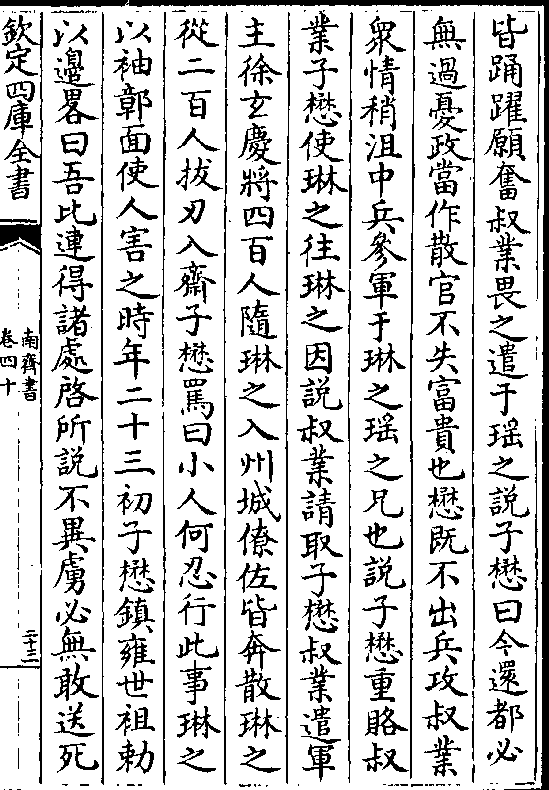 皆踊躍願奮叔業畏之遣于瑶之説子懋曰今還都必
無過憂政當作散官不失富貴也懋既不出兵攻叔業
衆情稍沮中兵參軍于琳之瑶之兄也説子懋重賂叔
業子懋使琳之往琳之因説叔業請取子懋叔業遣軍
主徐玄慶將四百人隨琳之入州城僚佐皆奔散琳之
從二百人拔刃入齋子懋罵曰小人何忍行此事琳之
以袖鄣面使人害之時年二十三初子懋鎮雍世祖勅
以邊畧曰吾比連得諸處啓所説不異虜必無敢送死
欽定四庫全書
南齊書
卷四十
二十二